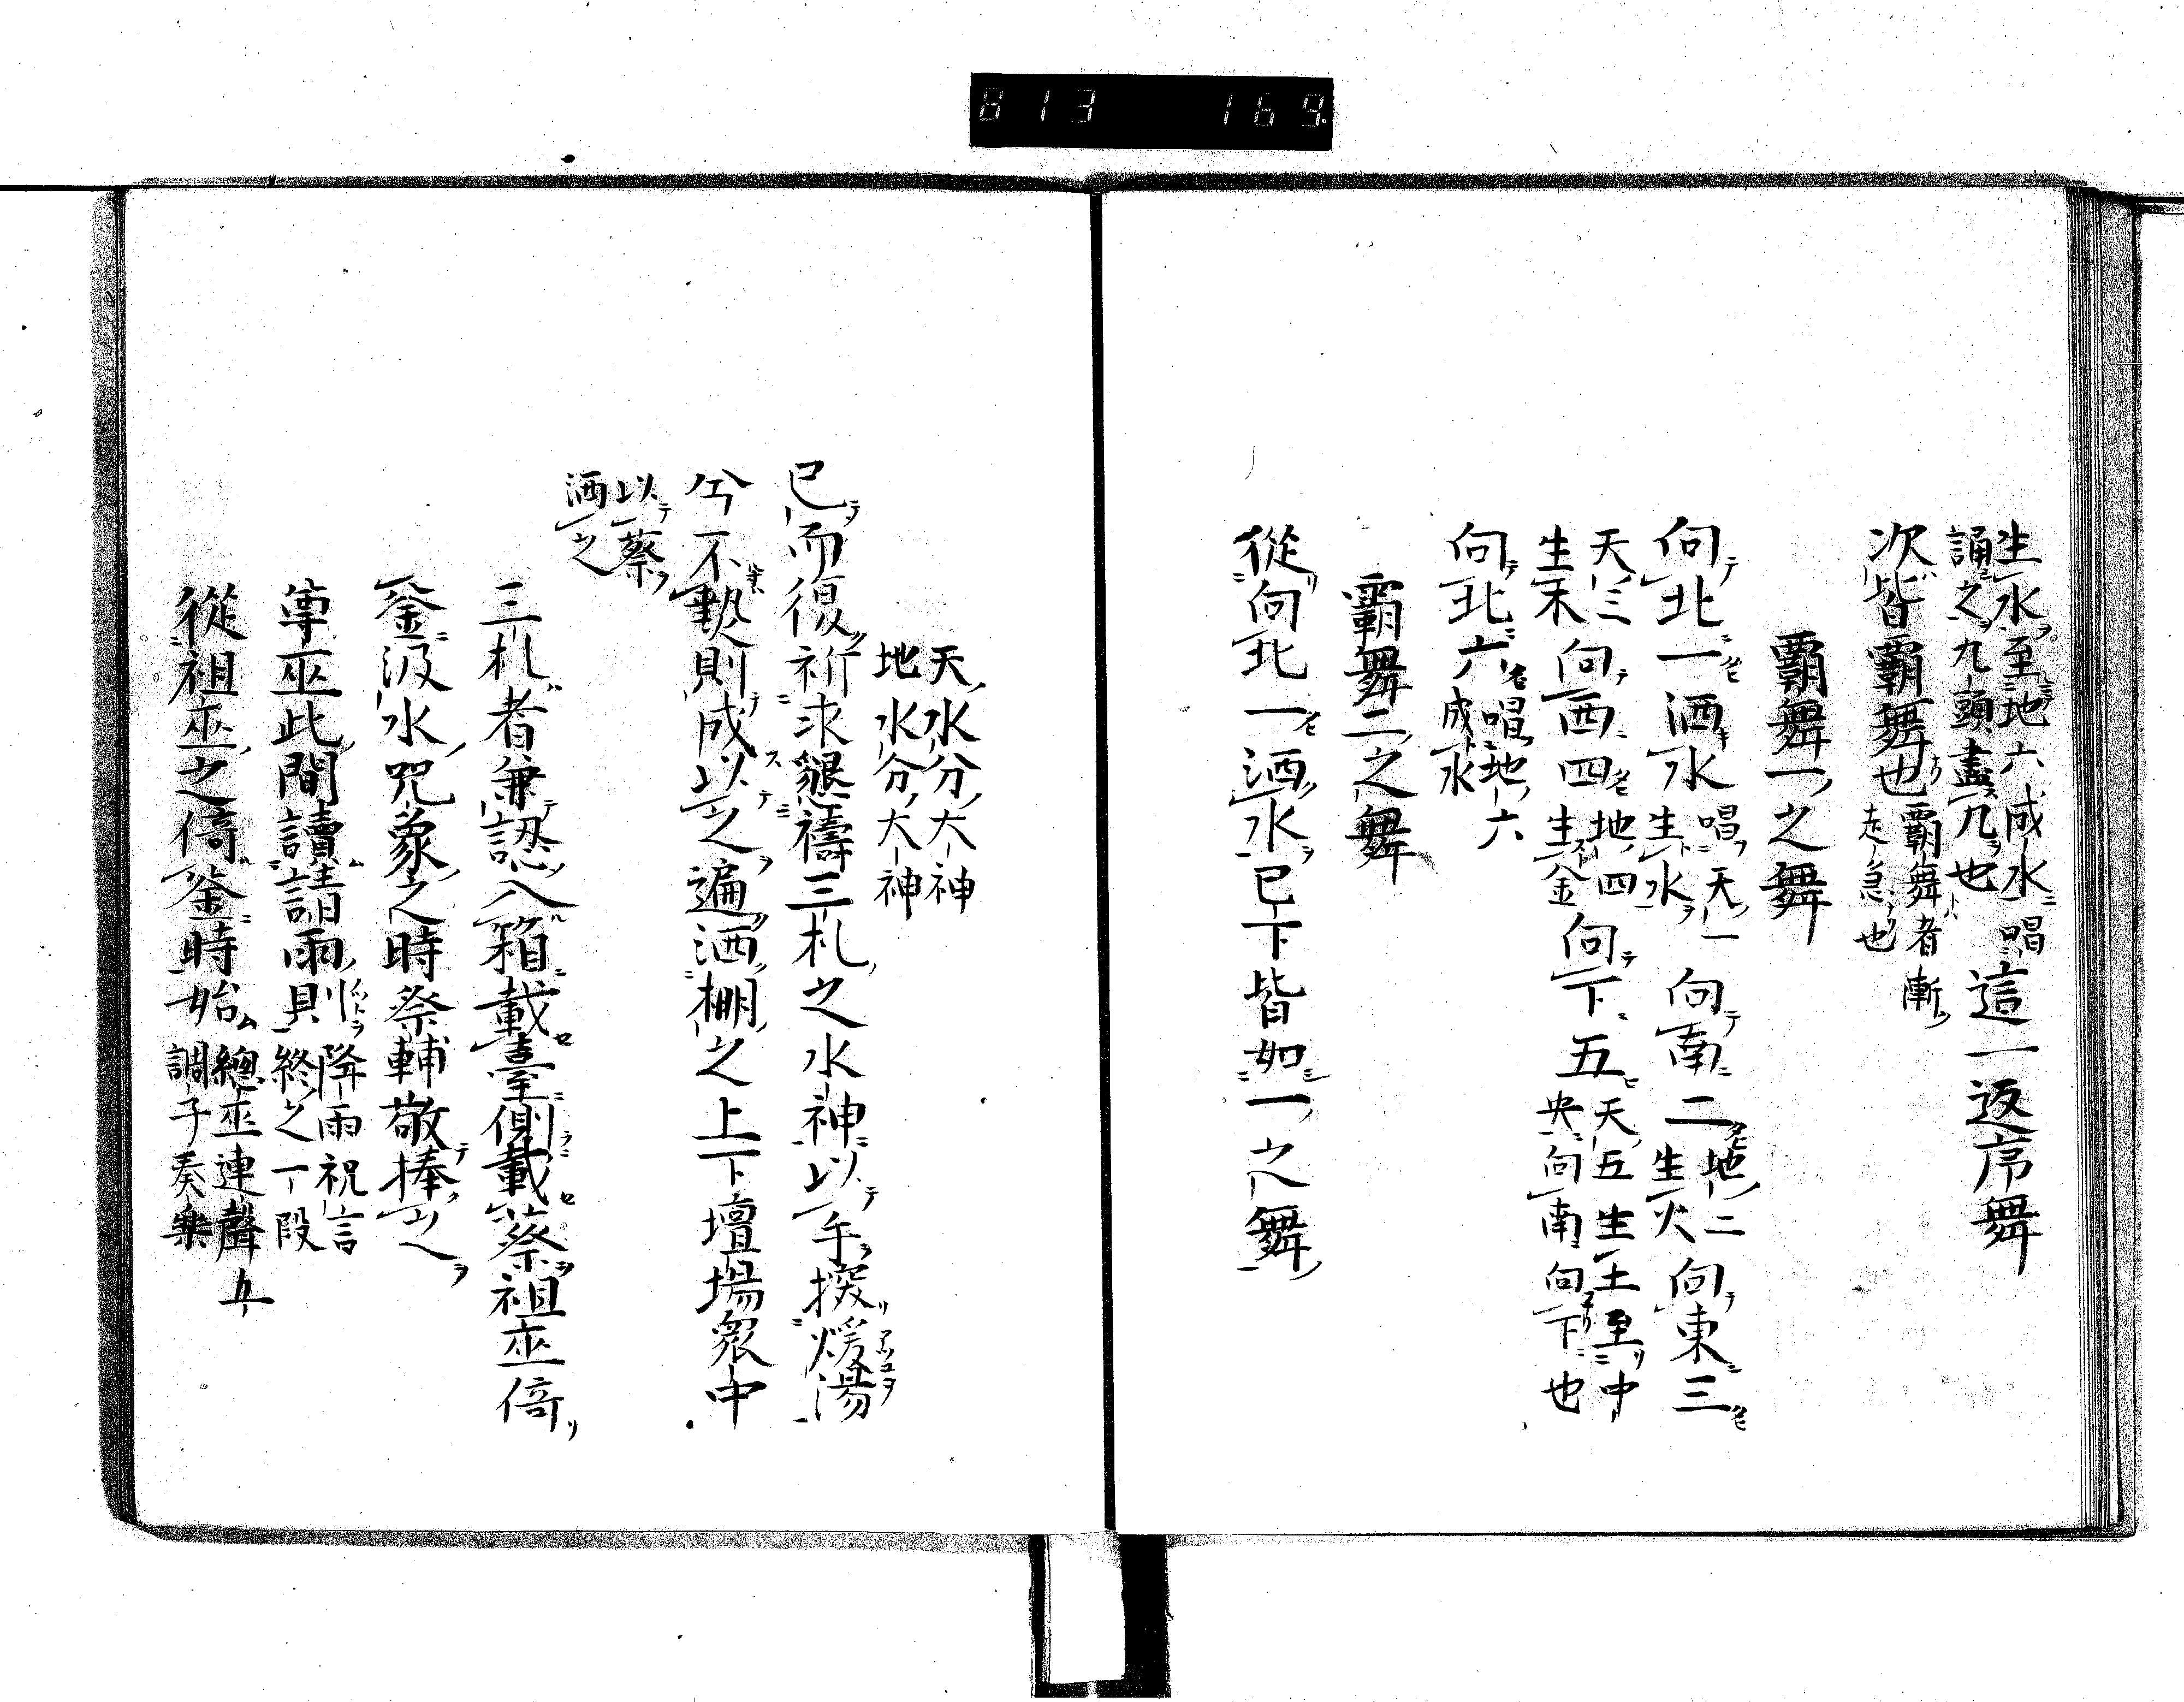 813 169
生水至地六成水唱
誦之九頭盡九也
這一返序舞
次皆覇舞也
覇舞者漸
走急也
覇舞一之舞
向北一洒水
唱天一
生水
向南二
地二
生火
向東三
天三
生木
向西四
地四
生金
向下五
天五生土至中
央向南向下也
向北六
唱地六
成水
覇舞二之舞
從向北一洒水已下皆如一之舞
天水分大神
地水分大神
已而復祈求懇禱三札之水神以手探煖湯
兮不熱則成以之遍洒棚之上下壇場衆中
以蔡
洒之
三札者兼認入箱載臺側載蔡祖巫倚
釜汲水咒象之時祭輔敬捧之
專巫此間讀請雨
則降雨祝言
終之一段
從祖巫之倚釜時始
總巫連聲五
調子奏樂